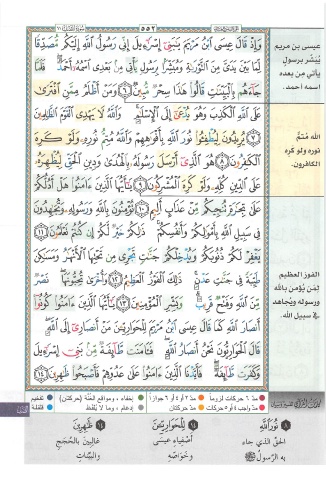 ٥٥٢
وَإِذْ قَالَ عِيسَى ٱبْنُ مَرْيَمَ يَٰبَنِىٓ إِسْرَٰٓءِيلَ إِنِّى رَسُولُ ٱللَّهِ إِلَيْكُم مُّصَدِّقًا
لِّمَا بَيْنَ يَدَىَّ مِنَ ٱلتَّوْرَىٰةِ وَمُبَشِّرًۢا بِرَسُولٍ يَأْتِى مِنۢ بَعْدِى ٱسْمُهُۥٓ أَحْمَدُ ۖ فَلَمَّا
جَآءَهُم بِٱلْبَيِّنَٰتِ قَالُوا۟ هَٰذَا سِحْرٌ مُّبِينٌ ٦ وَمَنْ أَظْلَمُ مِمَّنِ ٱفْتَرَىٰ
عَلَى ٱللَّهِ ٱلْكَذِبَ وَهُوَ يُدْعَىٰٓ إِلَى ٱلْإِسْلَٰمِ ۚ وَٱللَّهُ لَا يَهْدِى ٱلْقَوْمَ ٱلظَّٰلِمِينَ
٧ يُرِيدُونَ لِيُطْفِـُٔوا۟ نُورَ ٱللَّهِ بِأَفْوَٰهِهِمْ وَٱللَّهُ مُتِمُّ نُورِهِۦ وَلَوْ كَرِهَ
ٱلْكَٰفِرُونَ ٨ هُوَ ٱلَّذِىٓ أَرْسَلَ رَسُولَهُۥ بِٱلْهُدَىٰ وَدِينِ ٱلْحَقِّ لِيُظْهِرَهُۥ
عَلَى ٱلدِّينِ كُلِّهِۦ وَلَوْ كَرِهَ ٱلْمُشْرِكُونَ ٩ يَٰٓأَيُّهَا ٱلَّذِينَ ءَامَنُوا۟ هَلْ أَدُلُّكُمْ
عَلَىٰ تِجَٰرَةٍ تُنجِيكُم مِّنْ عَذَابٍ أَلِيمٍ ١٠ تُؤْمِنُونَ بِٱللَّهِ وَرَسُولِهِۦ وَتُجَٰهِدُونَ
فِى سَبِيلِ ٱللَّهِ بِأَمْوَٰلِكُمْ وَأَنفُسِكُمْ ۚ ذَٰلِكُمْ خَيْرٌ لَّكُمْ إِن كُنتُمْ تَعْلَمُونَ ١١
يَغْفِرْ لَكُمْ ذُنُوبَكُمْ وَيُدْخِلْكُمْ جَنَّٰتٍ تَجْرِى مِن تَحْتِهَا ٱلْأَنْهَٰرُ وَمَسَٰكِنَ
طَيِّبَةً فِى جَنَّٰتِ عَدْنٍ ۚ ذَٰلِكَ ٱلْفَوْزُ ٱلْعَظِيمُ ١٢ وَأُخْرَىٰ تُحِبُّونَهَا ۖ نَصْرٌ
مِّنَ ٱللَّهِ وَفَتْحٌ قَرِيبٌ ۗ وَبَشِّرِ ٱلْمُؤْمِنِينَ ١٣ يَٰٓأَيُّهَا ٱلَّذِينَ ءَامَنُوا۟ كُونُوٓا۟
أَنصَارَ ٱللَّهِ كَمَا قَالَ عِيسَى ٱبْنُ مَرْيَمَ لِلْحَوَارِيِّـۧنَ مَنْ أَنصَارِىٓ إِلَى ٱللَّهِ ۖ
قَالَ ٱلْحَوَارِيُّونَ نَحْنُ أَنصَارُ ٱللَّهِ ۖ فَـَٔامَنَت طَّآئِفَةٌ مِّنۢ بَنِىٓ إِسْرَٰٓءِيلَ
وَكَفَرَت طَّآئِفَةٌ ۖ فَأَيَّدْنَا ٱلَّذِينَ ءَامَنُوا۟ عَلَىٰ عَدُوِّهِمْ فَأَصْبَحُوا۟ ظَٰهِرِينَ ١٤
عيسى بن مريم
يُبَشّر برسولٍ
يأتي من بعده
اسمه أحمد.
الله مُتمّ
نوره ولو كره
الكافرون.
الفوز العظيم
لمَن يُؤمن بالله
ورسوله ويُجاهد
في سبيل الله.
مدّ ٦ حركات لزوماً
مدّ ٢ أو ٤ أو ٦ جوازاً
إخفاء، ومواقع الغُنَّة (حركتان)
تفخيم
مدّ واجب ٤ أو ٥ حركات
مدّ حركتان
إدغام، وما لا يُلفَظ
قلقلة
٨ نورَ الله
الحقّ الذي جاء
به الرسول ﷺ
١٤ لِلْحَوَارِيِّينَ
أصفياءِ عيسى
وخواصّه
١٤ ظَاهِرِينَ
غالبين بالحُجَج
والبيّنات